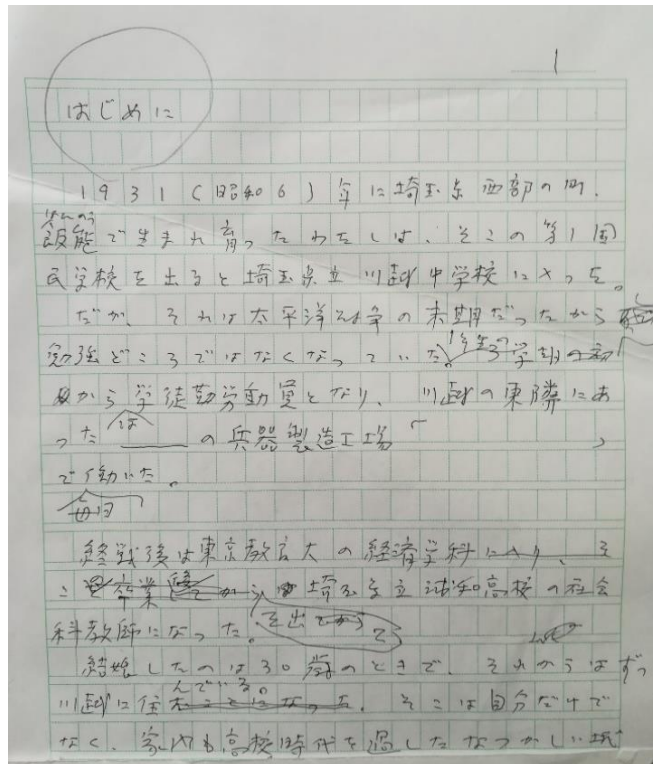 1
はじめに
1931(昭和6)年に埼玉県西部の町、
はんのう
飯能で生まれ育ったわたしは、そこの第1国
民学校を出ると埼玉県立川越中学校に入った。
だが、それは太平洋戦争の末期だったから
勉強どころではなくなっていた。1年生の3学期の
から学徒勤労動員となり、川越の東隣にあ
ったは の兵器製造工場「 」
で働いた。
毎日
終戦後は東京教育大の経済学科に入り、そ
こ 卒業 してから 埼玉県立浦和高校の社会
を出て
科教師になった。
結婚したのは30歳のときで、それからはずっ
んでいる。
川越に住たことになった。そこは自分だけで
なく、家内も高校時代を過したなつかしい